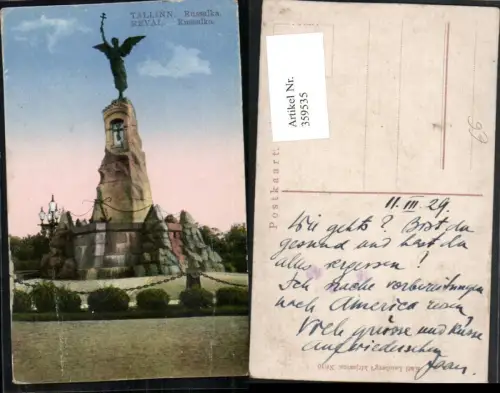 TALLINN. Russalka.
REVAL. Russalka.
Artikel Nr.
359535
66
Postkaart.
11.III.29.
Wie gehts? Bist du
gesund und hast du
alles vergessen!
Ich mache vorbereitungen
nach America
Viele grüsse und küsse
Aufwiedersehen